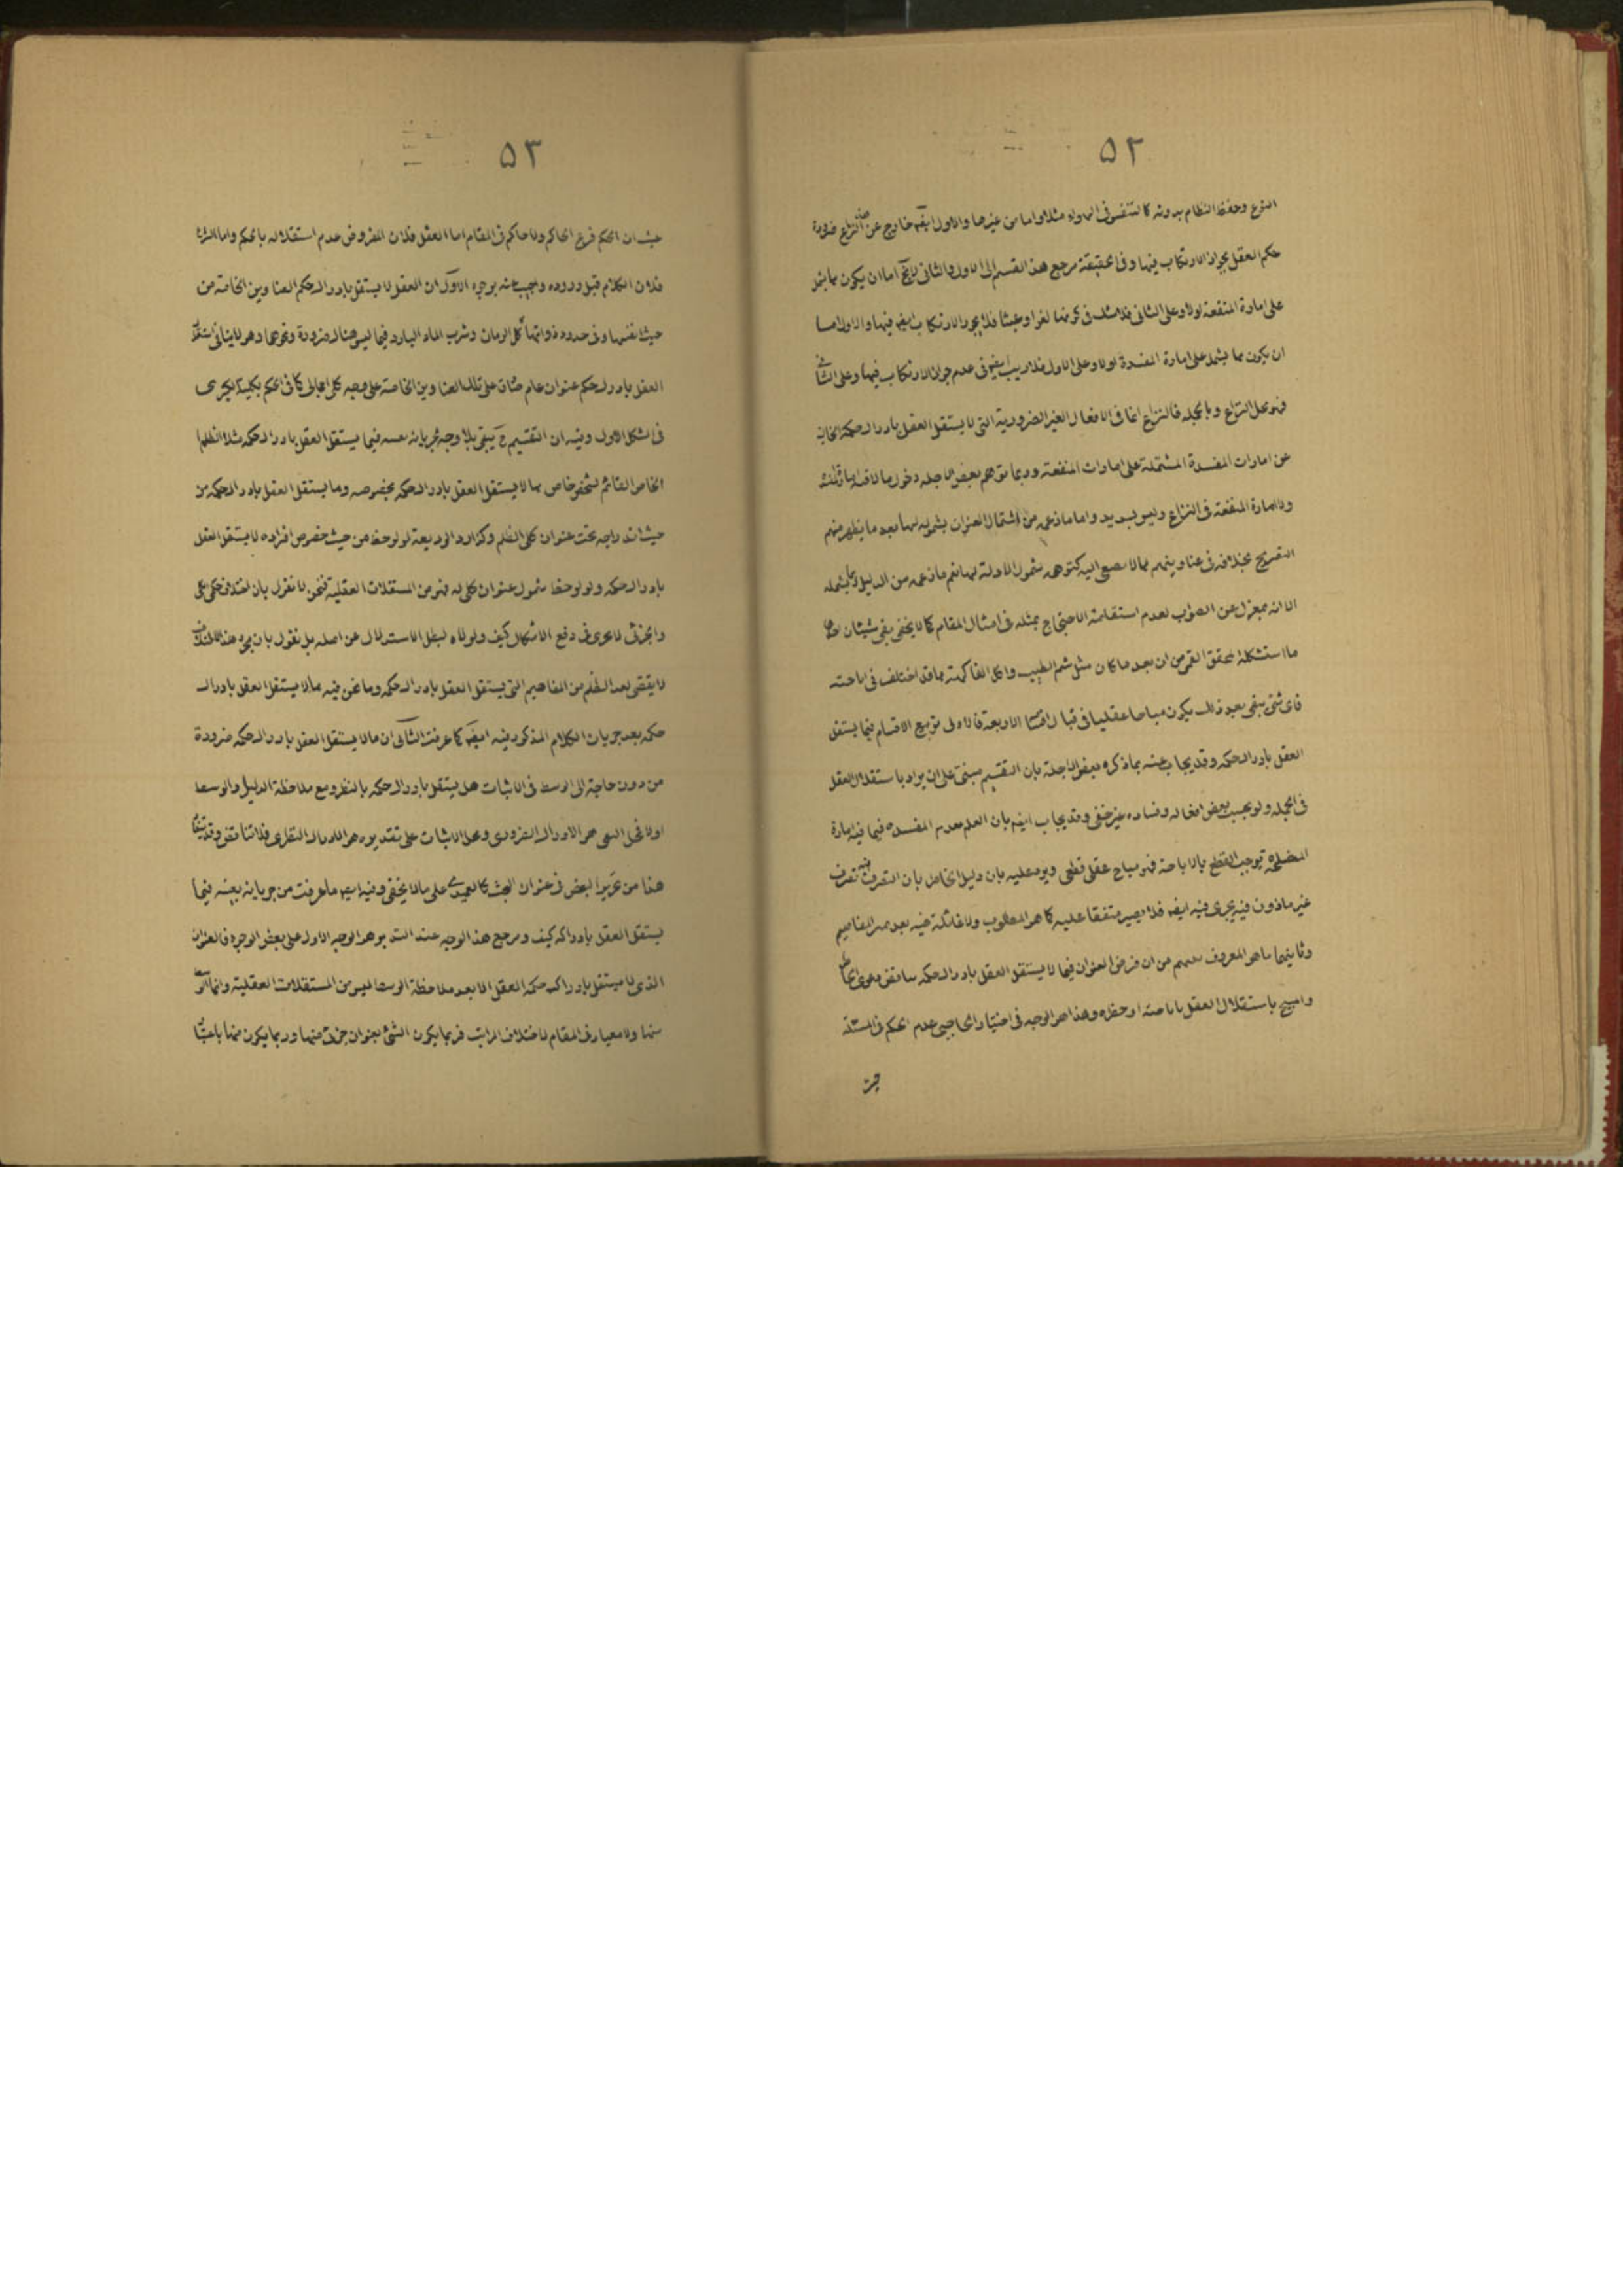 ۵۲
النوع وحفظ النظام بدونه كالتنفس فى الهواء مثلا واما من غيرها والاول ايضا خارج عن النزاع ضرورة
حكم العقل بجواز الارتكاب فيها وفى الحقيقة مرجع هذا القسم الى الاول والثانى لانه اما ان يكون مما يشمل
على امارة المنفعة اولا وعلى الثانى فلا شك فى كونها لغوا وعبثا فلا يجوز الارتكاب ايضا فيها والاول اما
ان يكون مما يشمل على امارة المفسدة اولا وعلى الاول فلا ريب ايضا فى عدم جواز الارتكاب فيها وعلى الثانى
فهو محل النزاع وبالجملة فالنزاع انما فى الافعال الغير الضرورية التى لا يستقل العقل بادراك حكمه الخالية
عن امارات المفسدة المشتملة على امارات المنفعة وربما توهم بعض الاجلة دخول ما لا فيه امارة المفسدة
ولا امارة المنفعة فى النزاع وليس بسديد واما ما زعمه من اشتمال العنوان بشموله لها بعد ما يظهر منهم
التصريح بخلافه فى عناوينهم مما لا يصغى اليه كتوهم شمول الادلة لها نعم ما زعمه من الدليل يشمله
الا انه بمعزل عن الصواب لعدم استقامة الاحتجاج بمثله فى امثال المقام كما لا يخفى بقى شيئان احدهما
ما استشكله المحقق القمى من ان بعد ما كان مثل شم الطيب واكل الفاكهة مما قد اختلف فى اباحته
فاى شئ يبقى بعد ذلك يكون مباحا عقليا فى قبال اقسام الاربعة فالاولى تربيع الاقسام فيما يستقل
العقل بادراك حكمه وقد يجاب عنه بما ذكره بعض الاجلة بان التقسيم مبنى على ان يراد باستقلال العقل
فى الجملة ولو بحسب بعض افعاله وفساده غير خفى وقد يجاب ايضا بان العلم بعدم المفسدة فيما فيه امارة
المصلحة توجب القطع بالاباحة فهو مباح عقلى قطعى ويرد عليه بان دليل الخاص بان التصرف فيه تصرف
غير ماذون فيه يجرى فيه ايضا فلا يصير متفقا عليه كما هو المطلوب ولا غائلة فيه بعد
وثانيهما ما هو المعروف بينهم من ان فرض العنوان فيما لا يستقل العقل بادراك حكمه يناقض دعوى الحاظر
والمبيح باستقلال العقل باباحته او حظره وهذا هو الوجه فى اختيار الحاجبى عدم الحكم فى المسئلة
حيث
۵۳
حيث ان الحكم فرع الحاكم ولا حاكم فى المقام اما العقل فلان المفروض عدم استقلاله بالحكم واما الشرع
فلان الكلام قبل وروده واجيب عنه بوجوه الاول ان العقل لا يستقل بادراك حكم العناوين الخاصة من
حيث انفسها وفى حدود ذواتها كاكل الرمان وشرب الماء البارد فيما ليس هناك ضرورة ونحوهما وهو لا ينافى استقلال
العقل بادراك حكم عنوان عام صادق على تلك العناوين الخاصة على وجه كلى اجمالى كما فى الحكم بكلية الكبرى
فى الشكل الاول وفيه ان التقسيم ح يبقى بلا وجه لجريانه بعينه فيما يستقل العقل بادراك حكمه مثلا الظلم
الخاص القائم لشخص خاص مما لا يستقل العقل بادراك حكمه بخصوصه وما يستقل العقل بادراك حكمه من
حيث اندراجه تحت عنوان كلى الظلم وكذا رد الوديعة لو لوحظ من حيث خصوص افراده لا يستقل العقل
بادراك حكمه ولو لوحظ شمول عنوان كلى له فهو من المستقلات العقلية فنحن لا نقول بان اختلاف حكمى الكلى
والجزئى لا يجرى فى دفع الاشكال كيف ولولاه لبطل الاستدلال عن اصله بل نقول بان مجرد هذا الاختلاف
لا يقضى بعد الظلم من المفاهيم التى يستقل العقل بادراك حكمه وما نحن فيه مما لا يستقل العقل بادراك
حكمه بعد جريان الكلام المذكور فيه ايضا كما عرفت الثانى ان ما لا يستقل العقل بادراك حكمه ضرورة
من دون حاجة الى الوسط فى الاثبات هل يستقل بادراك حكمه بالنظر ومع ملاحظة الدليل والوسط
اولا فمحل النفى هو الادراك الضرورى ومحل الاثبات على تقديره هو الادراك النظرى فلا تناقض وقد يستفاد
هذا من تحرير البعض فى عنوان البحث كالعميدى على ما لا يخفى وفيه ايضا ما عرفت من جريانه بعينه فيما
يستقل العقل بادراكه كيف ومرجع هذا الوجه عند التدبر هو الوجه الاول على بعض الوجوه فالعنوان
الذى لا يستقل بادراك حكمه العقل الا بعد ملاحظة الوسط ليس من المستقلات العقلية وانما
منها ولا معيار فى المقام لاختلاف المراتب فربما يكون الشئ بعنوان جزئى منها وربما يكون منها باعتبار